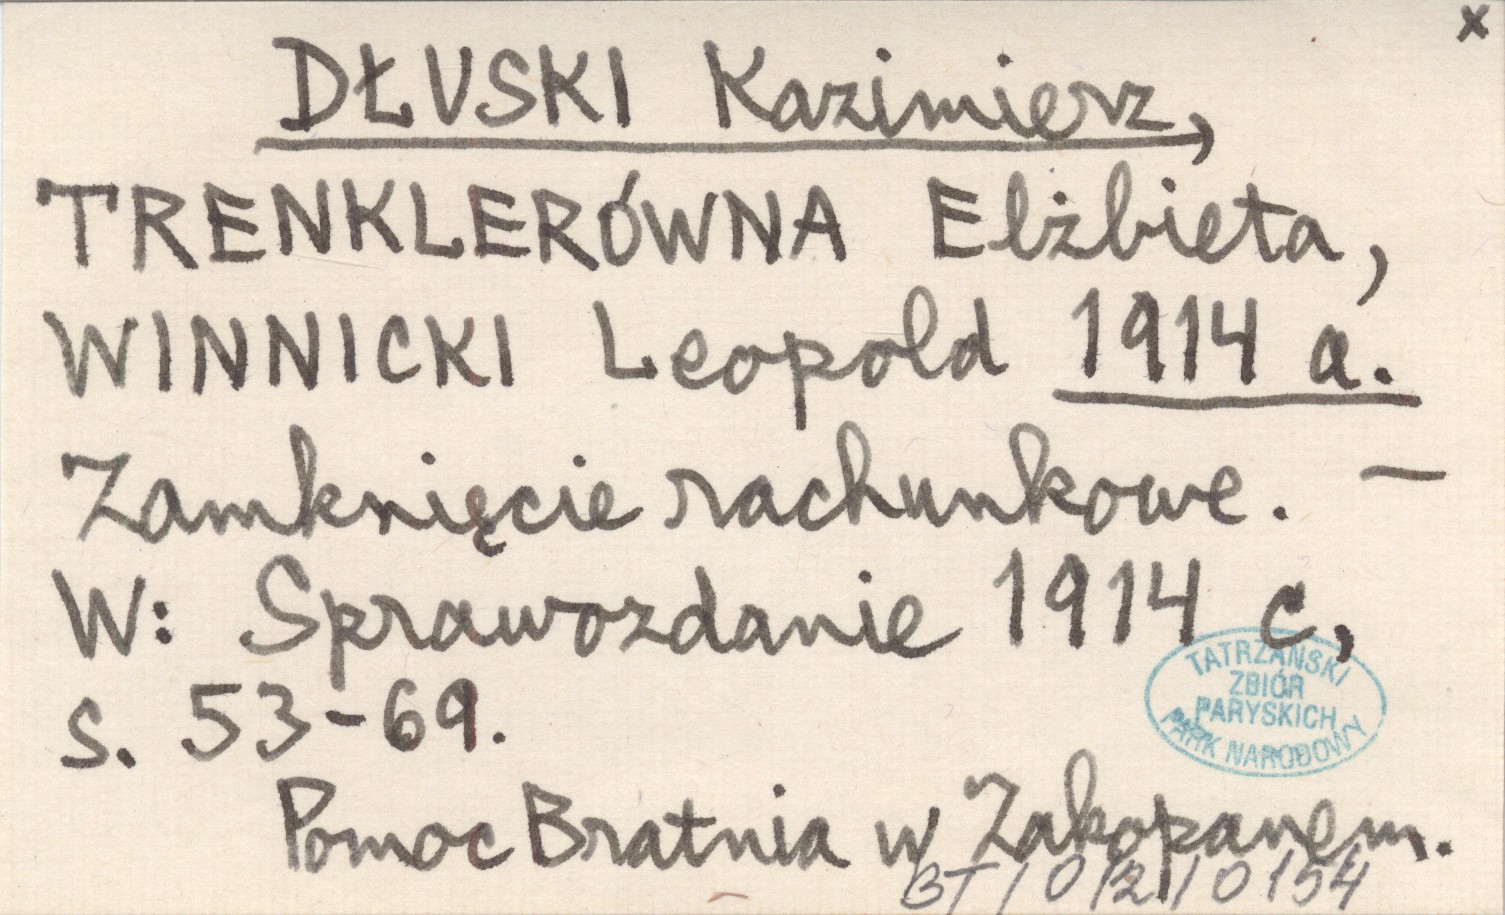 x
DŁUSKI Kazimierz,
TRENKLERÓWNA Elżbieta,
WINNICKI Leopold 1914 a.
Zamknięcie rachunkowe. —
W: Sprawozdanie 1914 c,
s. 53-69.
TATRZAŃSKI
ZBIÓR
PARYSKICH
PARK NARODOWY
Pomoc Bratnia w Zakopanem.
BT/0/2/0154